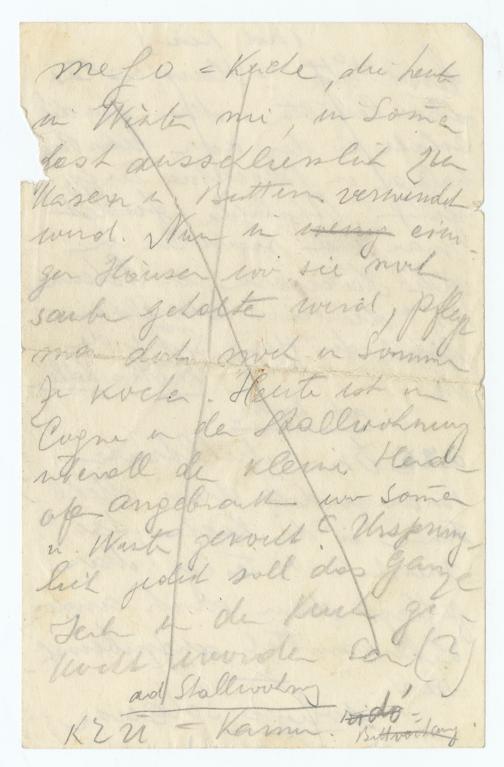 mefo = Küche, die heute
im Winter nie, im Somer
fast ausschliesslich zum
Käsen u. Buttern verwendet
wird. Nur in wenig eini-
gen Häuser wo sie noch
sauber gehalte wird, pflegt
man dort noch im Sommer
zu kochen. Heute ist in
Cogne in der Stallwohnung
überall der kleine Herd-
ofen angebracht wo Somer
u. Winter gekocht. Ursprüng-
lich jedoch soll das ganze
Jahr in der Küche ge-
kocht worden sein (?)
ad Stallwohnung
= Kamin.